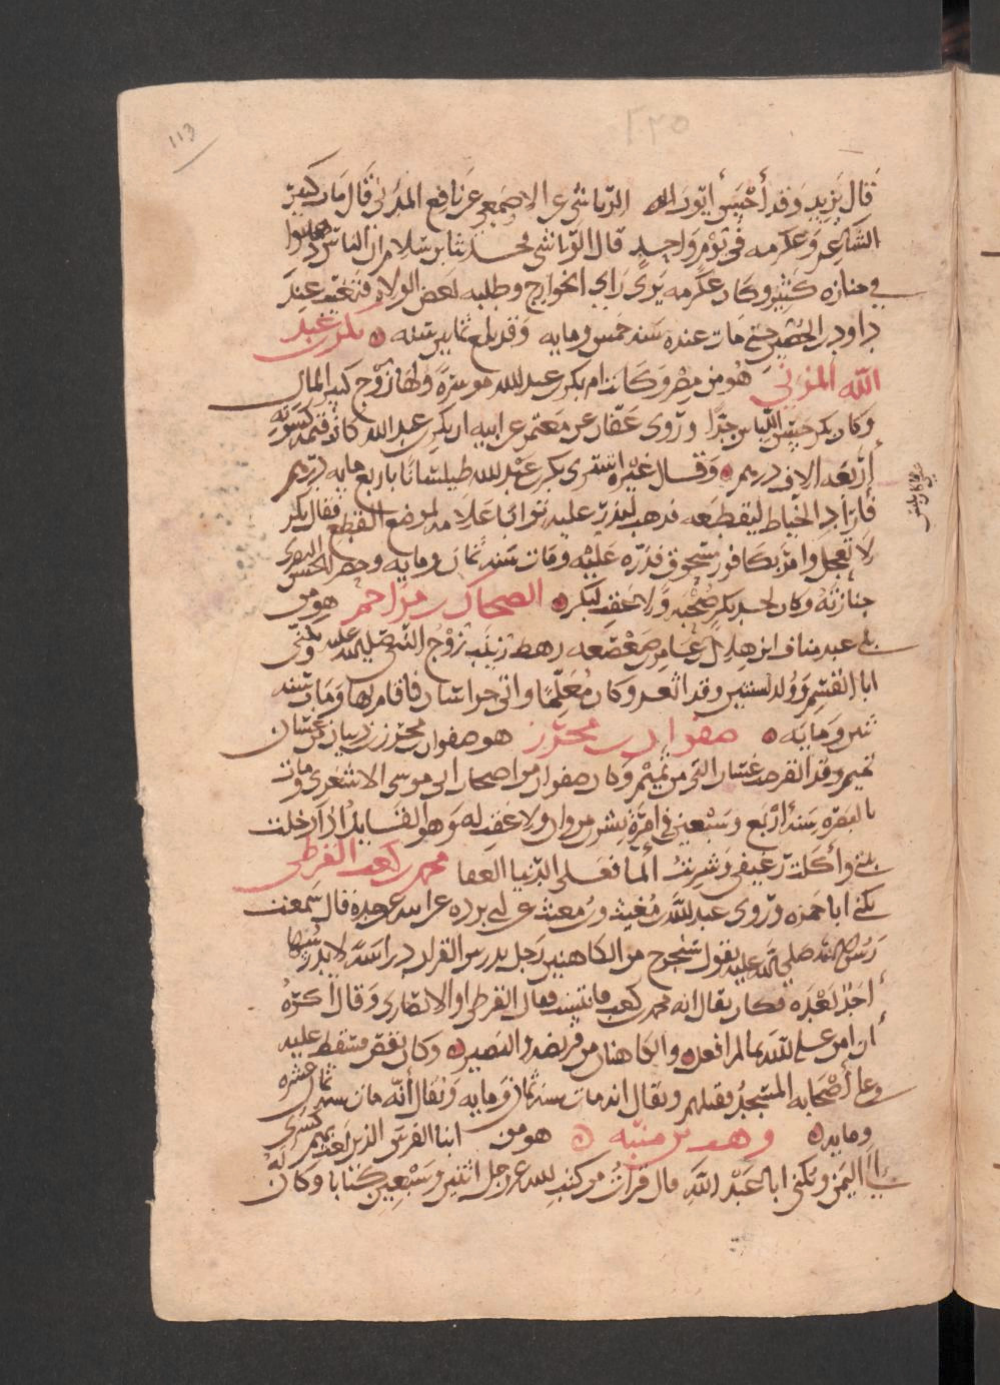 113
٢٢٥
قال يزيد وقد أحتبس أيوب الله الرياشي عن الاصمعي عن نافع المدني قال مات كثير
الشاعر وعكرمه في يوم واحد قال الرياشي فحدثنا بن سلام ان الناس ذهبوا
في جنازه كثير وكان عكرمه يرى راي الخوارج وطلبه بعض الولاه فتغيب عند
داود بن الحصين حتى مات عنده سنه خمس ومايه وقد بلغ ثمانين سنه بكر بن عبد
الله المزني هو من مضر وكانت ام بكر بن عبد الله موسرة ولها زوج كثير المال
وكان بكر حسن اللباس جدا وروى عفان عن معتمر عن ابيه ان بكر بن عبد الله كانت قيمة كسوته
أربعه الاف درهم وقال غيره اشترى بكر بن عبد الله طيلسانا باربع مايه درهم
فأراد الخياط ليقطعه فذهب ليذر عليه ترابا علامه لموضع القطع فقال بكر
لا تعجل وامر بكافور مسحوق فذره عليه ومات سنه ثمان ومايه وحضر الحسن البصري
جنازته وكان لجد بكر صحبه ولا عقب لبكر الضحاك بن مزاحم هو من
بني عبد مناف ابن هلال بن عامر بن صعصعه رهط زينب زوج النبي صلى الله عليه ويكنى
ابا القسم وولد لسنتين وقد اثغر وكان معلما واتى خراسان فاقام بها ومات سنه
ثنين ومايه صفوان بن محرز هو صفوان بن محرز بن زياد من غسان
تميم وقد انقرضت غسان التي من تميم وكان صفوان من اصحاب ابي موسى الاشعري ومات
بالبصره سنه أربع وسبعين في امرة بشر بن مروان ولا عقب له وهو القايل اذا دخلت
بيتي وأكلت رغيفي وشربت ألما فعلى الدنيا العفا محمد بن كعب القرظي
يكنى ابا حمزه وروى عبد الله بن مغيث بن ابي برده عن ابيه عن جده قال سمعت
رسول الله صلى الله عليه يقول سيخرج من الكاهنين رجل يدرس القران دراسة لا يدرسها
أحد بعده فكان يقال انه محمد بن كعب فاتيت فقال القرظي او الانصاري وقال أكره
أن امن على الله بما لم افعل والكاهنان من قريظه والنضير وكان يقص فسقط عليه
وعلى أصحابه المسجد فقتلهم ويقال انه مات سنه ثمان ومايه ويقال أنه مات سنه ثمان عشره
ومايه وهب بن منبه هو من ابنا الفرس الذين بعث بهم كسرى
إلى اليمن ويكنى ابا عبد الله قال قرات من كتب الله عز وجل اثنين وسبعين كتابا وكان له